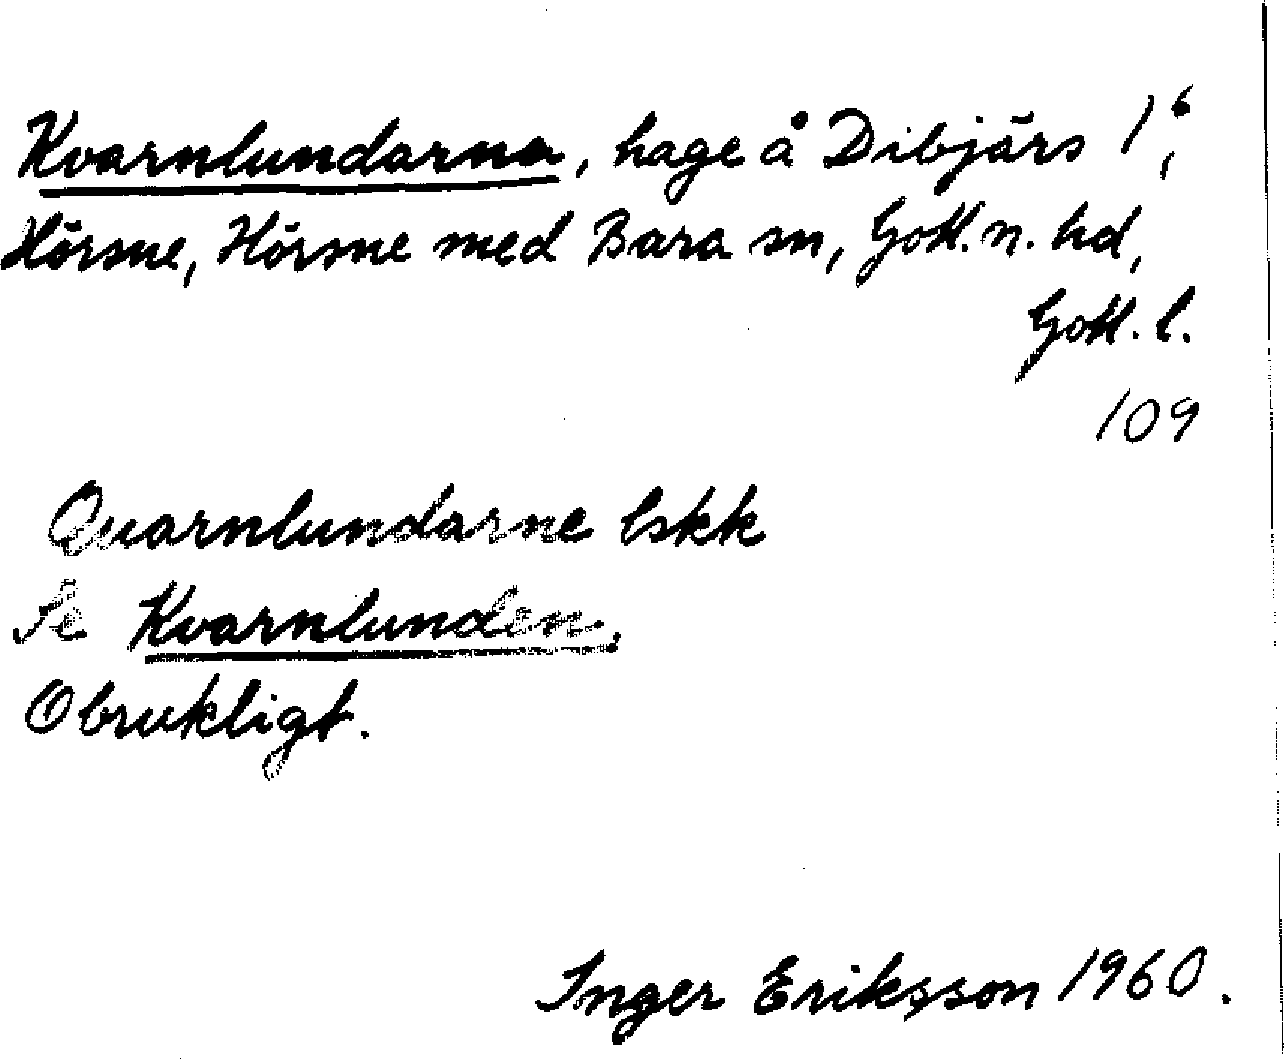 Kvarnlundarna, hage å Dibjärs 1⁶,
Hörsne, Hörsne med Bara sn, Gotl. n. hd,
Gotl. l.
109
Quarnlundarne lskk
Se Kvarnlunden.
Obrukligt.
Inger Eriksson 1960.